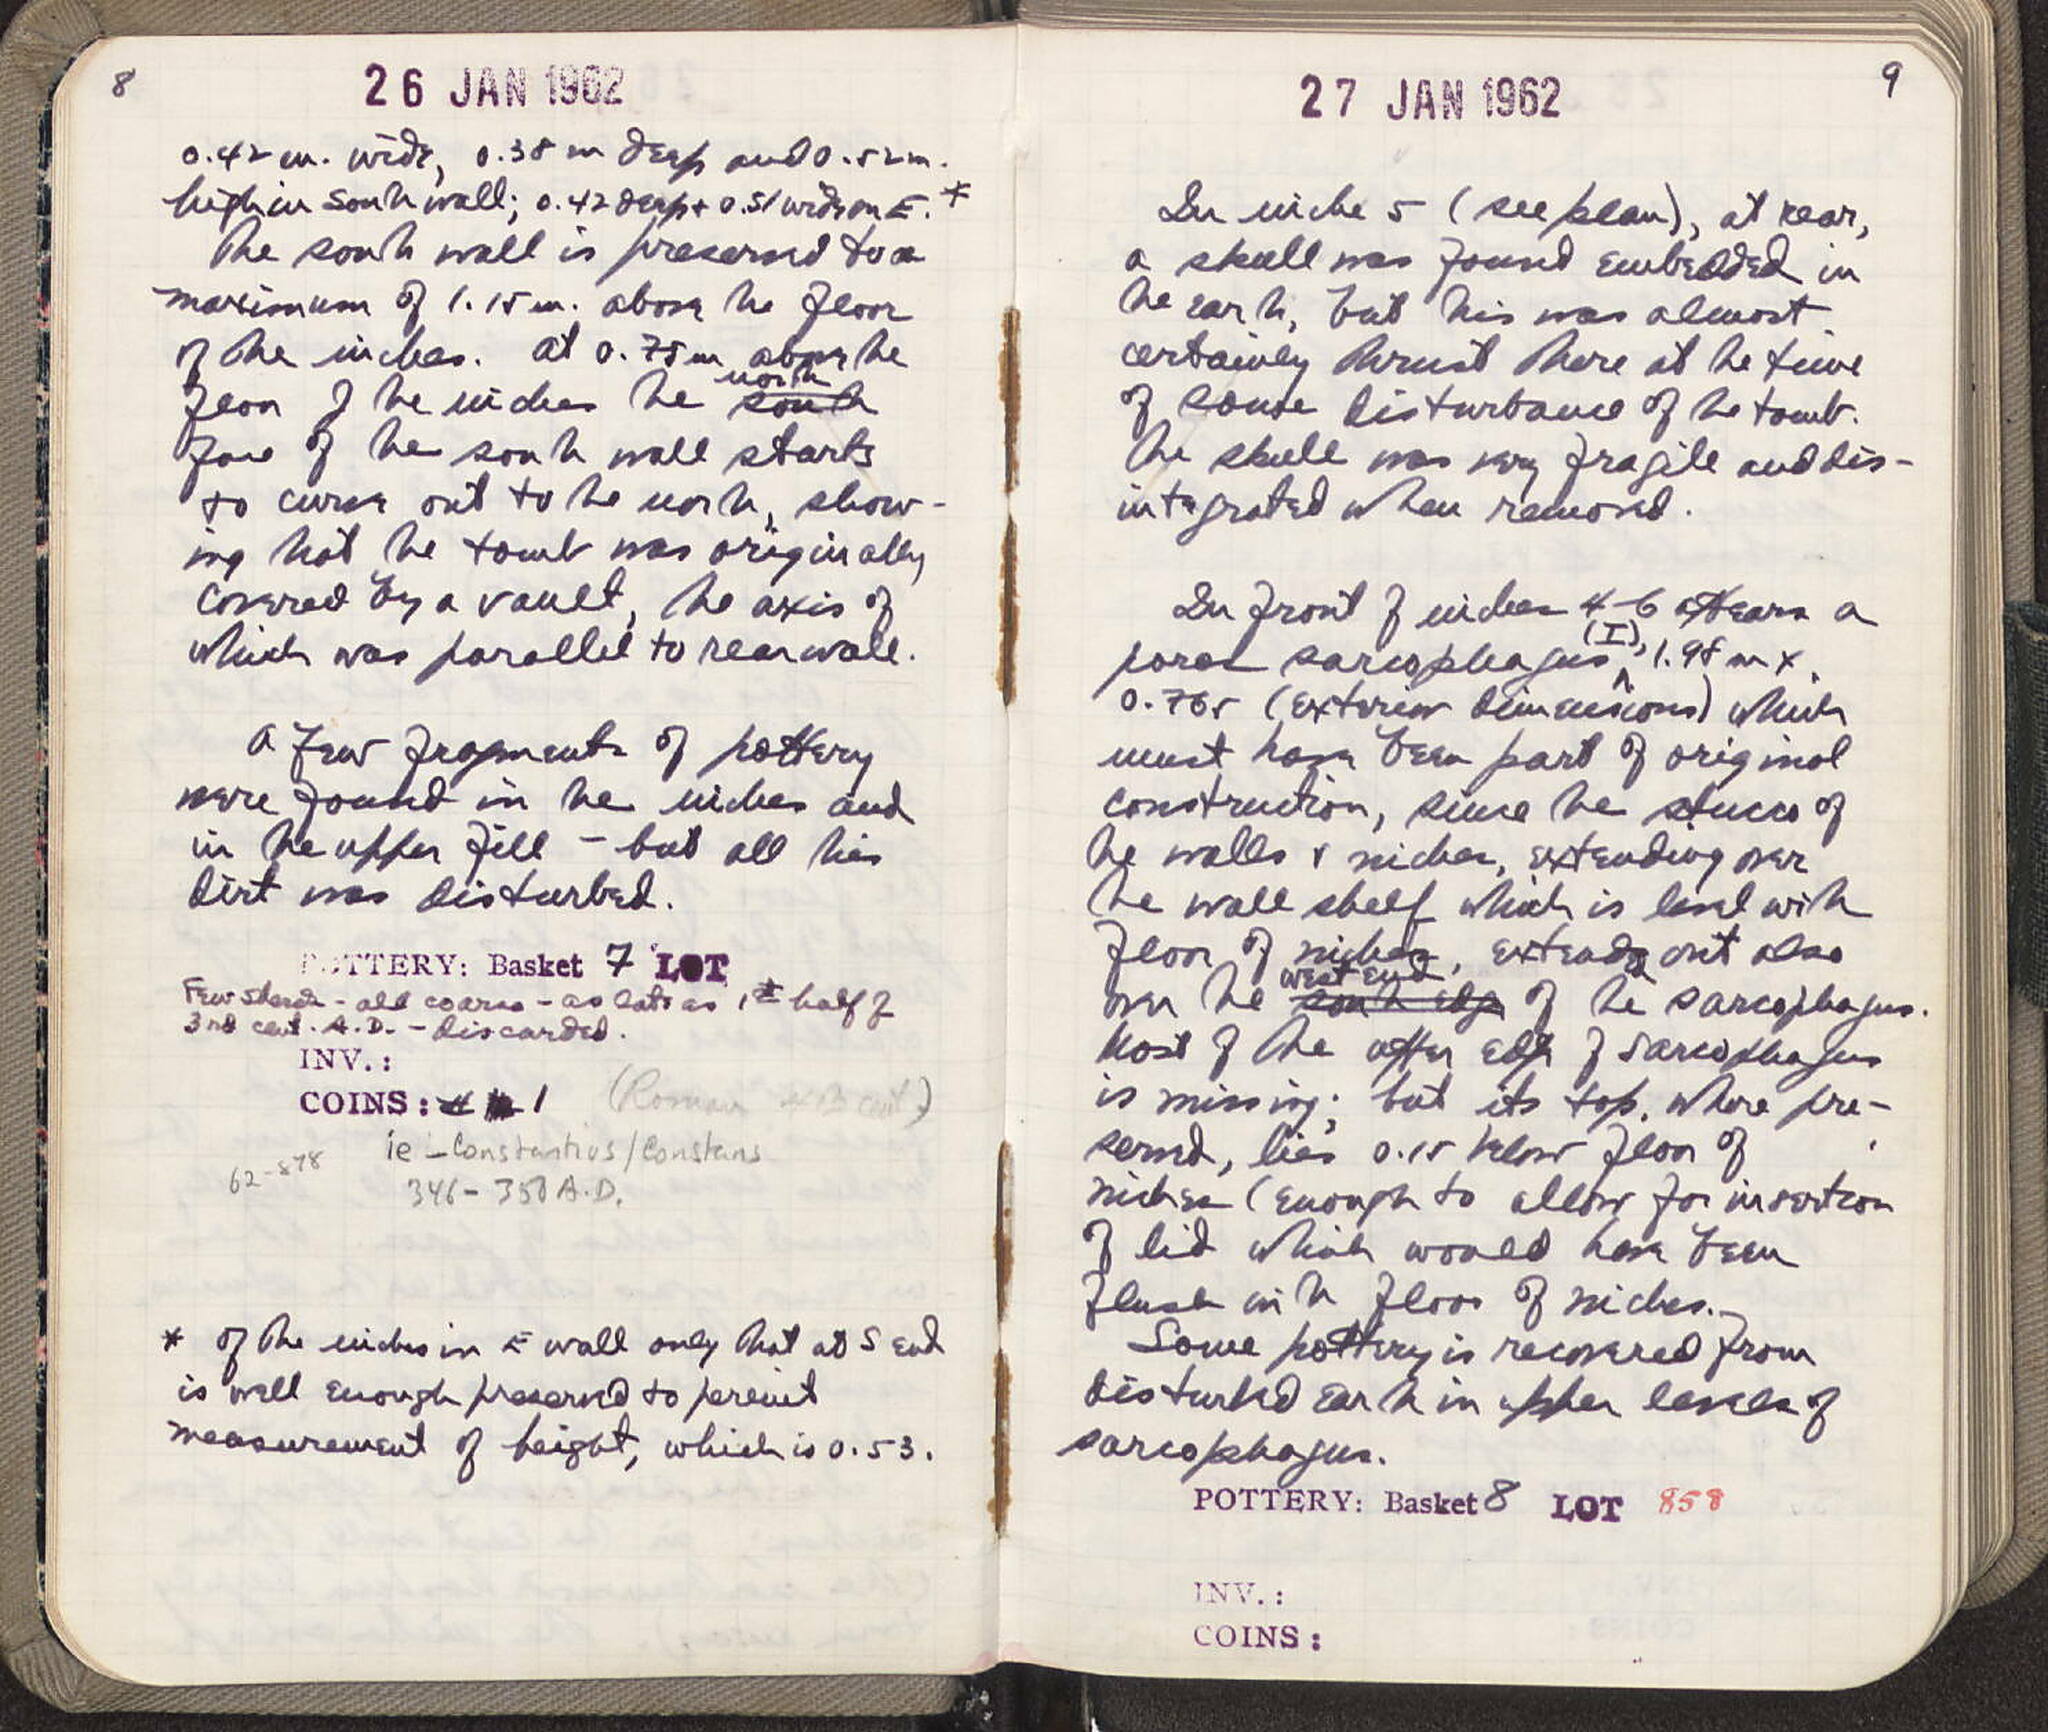 8
26 JAN 1962
0.42 m. wide, 0.38 m deep and 0.52 m.
high in south wall; 0.42 deep + 0.51 wide on E. *
The south wall is preserved to a
maximum of 1.15 m. above the floor
of the niches. At 0.75 m above the
floor of the niches the south north
face of the south wall starts
to curve out to the north, show-
ing that the tomb was originally
covered by a vault, the axis of
which was parallel to rear wall.
A few fragments of pottery
were found in the niches and
in the upper fill - but all this
dirt was disturbed.
POTTERY: Basket 7 LOT
Few sherds - all coarse - as late as 1st half of
3rd cent. A.D. - discarded.
INV.:
COINS: # 1 (Roman 4th cent.)
ie - Constantius/Constans
62-878
346-350 A.D.
* Of the niches in E wall only that at S end
is well enough preserved to permit
measurement of height, which is 0.53.
9
27 JAN 1962
In niche 5 (see plan), at rear,
a skull was found embedded in
the earth, but this was almost
certainly thrust there at the time
of some disturbance of the tomb.
The skull was very fragile and dis-
integrated when removed.
In front of niches 4-6 appears a
poros sarcophagus (I), 1.98 m x
0.765 (exterior dimensions) which
must have been part of original
construction, since the stucco of
the walls & niches, extending over
the wall shelf which is level with
floor of niches, extends out also
over the south edge west end of the sarcophagus.
Most of the upper edge of sarcophagus
is missing; but its top, where pre-
served, lies 0.15 below floor of
niches (enough to allow for insertion
of lid which would have been
flush with floor of niches.-
Some pottery is recovered from
disturbed earth in upper levels of
sarcophagus.
POTTERY: Basket 8 LOT 858
INV.:
COINS: